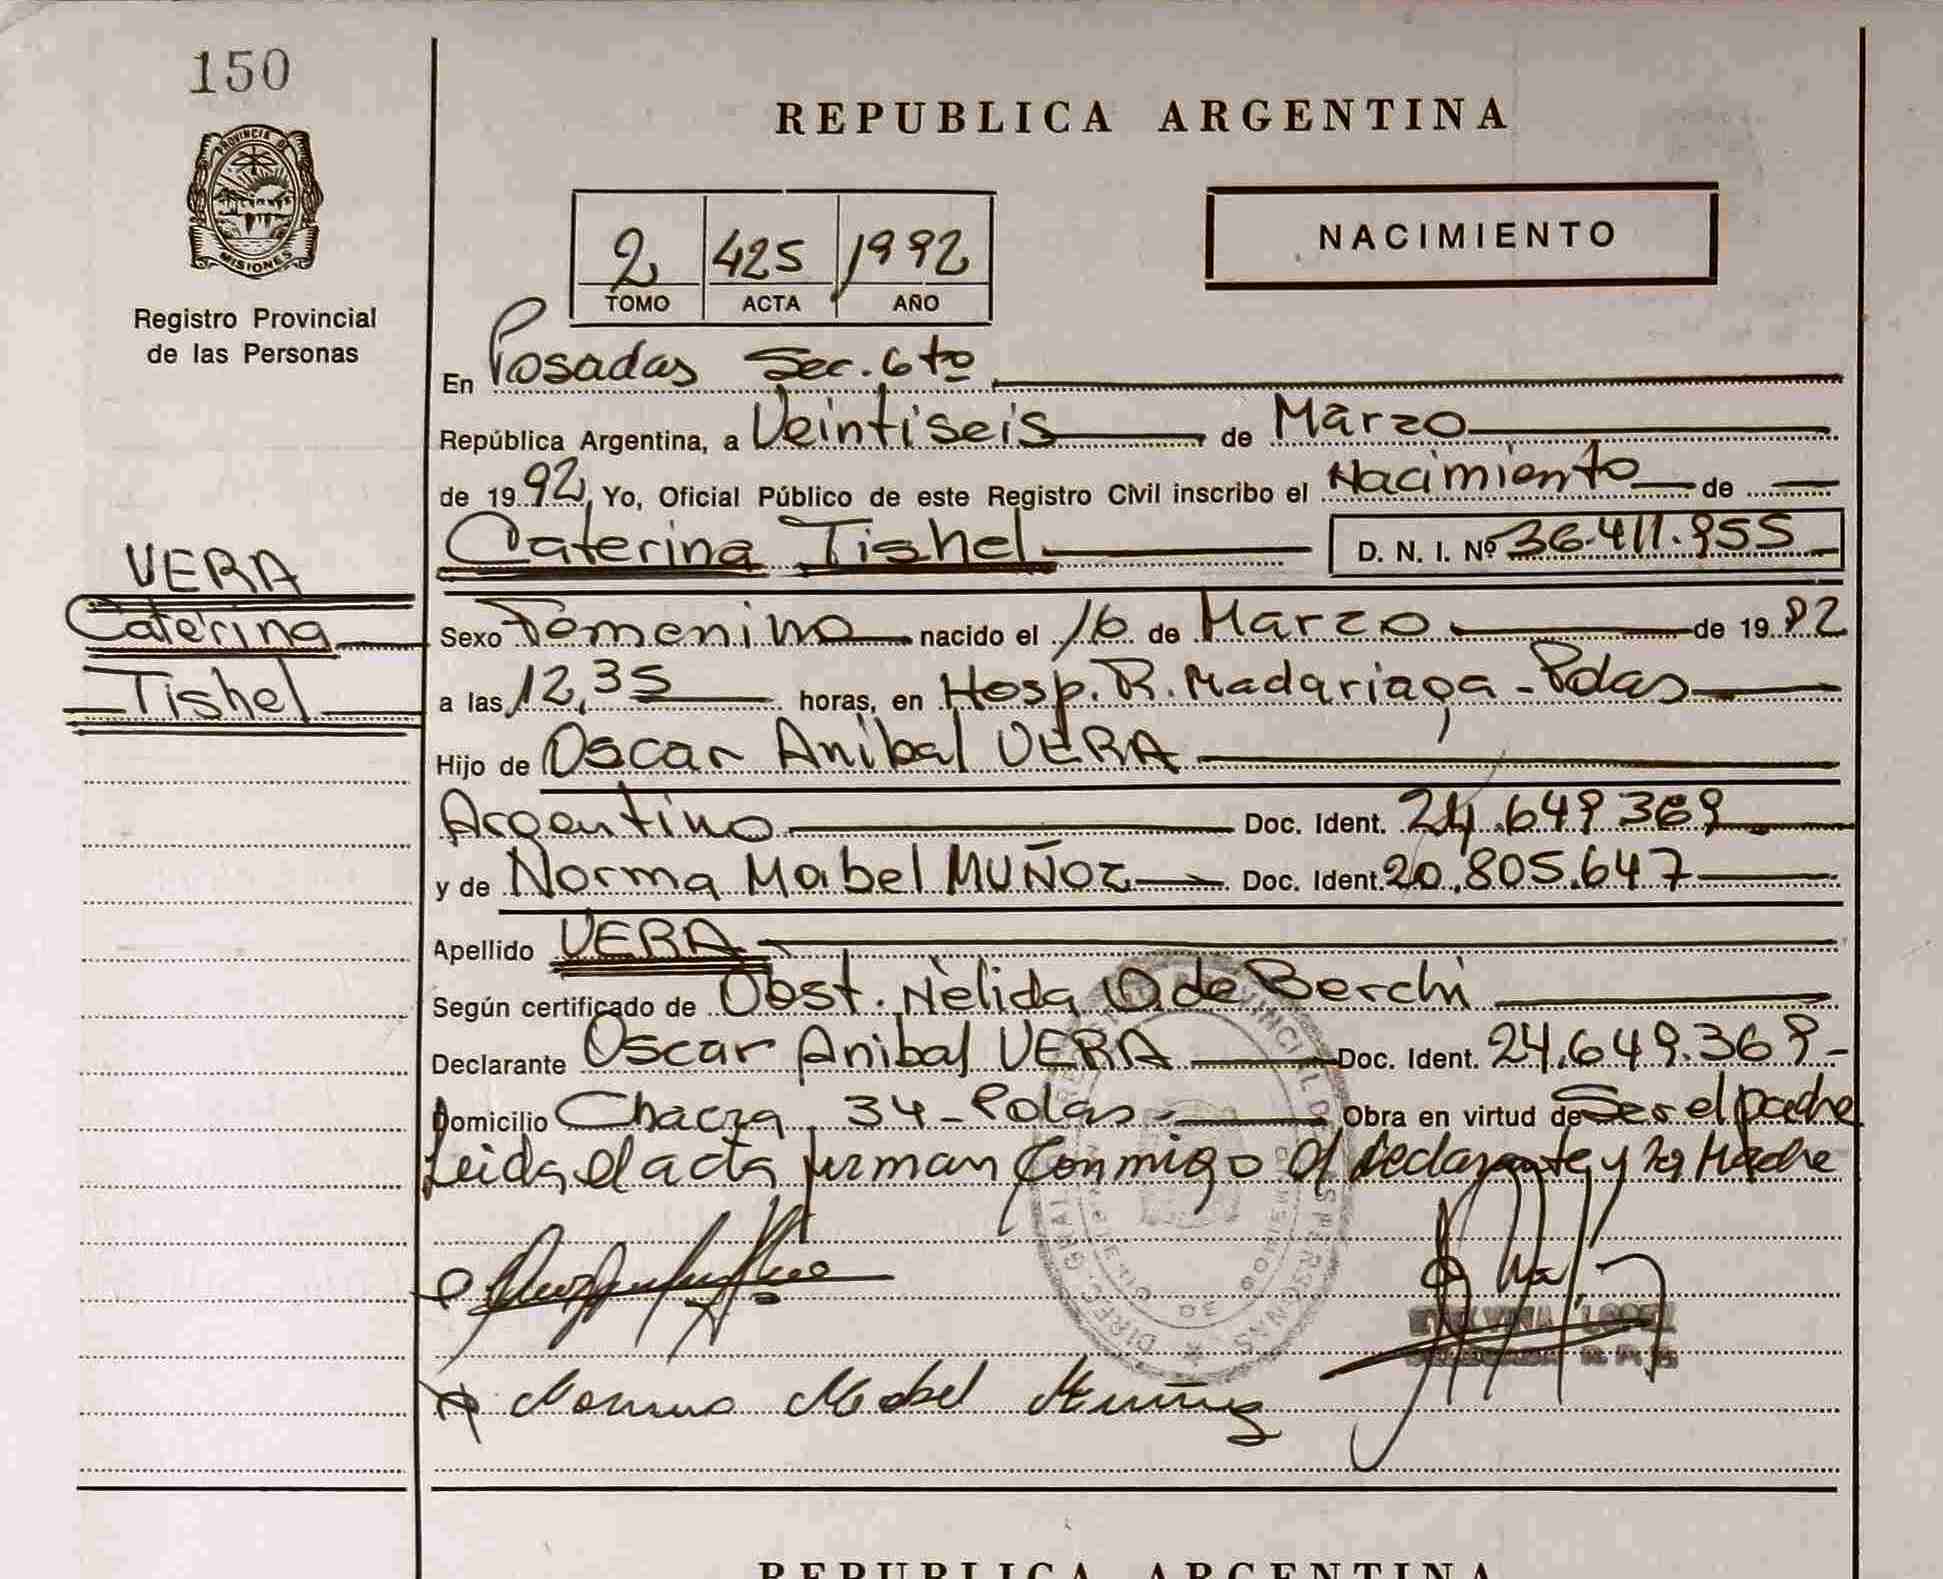 150
REPUBLICA ARGENTINA
PROVINCIA DE
MISIONES
Registro Provincial
de las Personas
2 425 1992
TOMO ACTA AÑO
NACIMIENTO
En Posadas Sec. 6to
República Argentina, a Veintiseis de Marzo
de 1992, Yo, Oficial Público de este Registro Civil inscribo el Nacimiento de
Caterina Tishel D. N. I. Nº 36.411.955
VERA
Caterina
Tishel
Sexo Femenino nacido el 16 de Marzo de 1992
a las 12,35 horas, en Hosp. R. Madariaga - Pdas
Hijo de Oscar Anibal VERA
Argentino Doc. Ident. 24.649.369
y de Norma Mabel MUÑOZ Doc. Ident. 20.805.647
Apellido VERA
Según certificado de Obst. Nèlida O. de Berchi
Declarante Oscar Anibal VERA Doc. Ident. 24.649.369-
Domicilio Chacra 34 - Pdas - Obra en virtud de Ser el padre
Leida el acta firman conmigo el declarante y la Madre
Norma Mabel Muñoz
REPUBLICA ARGENTINA